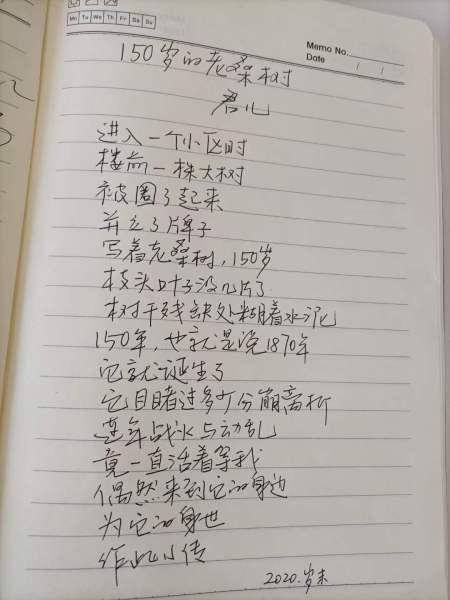 Mo Tu We Th Fr Sa Su
Memo No.
Date / /
150岁的老桑树
君儿
进入一个小区时
楼前一株大树
被圈了起来
并立了牌子
写着老桑树，150岁
枝头叶子没几片了
树干残缺处糊着水泥
150年，也就是说1870年
它就诞生了
它目睹过多少分崩离析
连年战火与动乱
竟一直活着等我
偶然来到它的身边
为它的身世
作此小传
2020.岁末